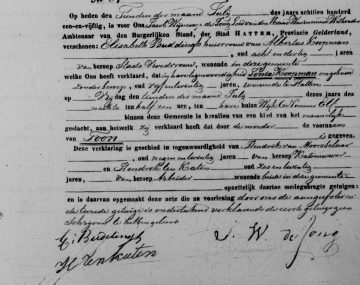 Op heden den Tienden der maand July des jaars achttien honderd
een-en-vijftig, is voor Ons
Ambtenaar van den Burgerlijken Stand, der Stad HATTEM, Provincie Gelderland,
verschenen: Elisabeth Buddingh huisvrouw van Albertus Koopman
oud acht en dertig jaren,
van beroep Stads Vroedvrouw, wonende in deze gemeente
welke Ons heeft verklaard, dat in hare tegenwoordigheid Koopman ongehuwd
zonder beroep, oud jaren, wonende te Hattem
op den der maand July dezes jaars des
nachts te half een ure, ten hare huize Wijk
binnen deze Gemeente is bevallen van een kind van het mannelijk
geslacht, aan hetwelk zij verklaard heeft dat door de moeder de voornaam
van Toon
Deze verklaring is geschied in tegenwoordigheid van Frederik van
oud negen en twintig jaren, van beroep
en Hendrik ten Katen oud zes en twintig
jaren, van beroep Arbeider wonende beide in deze gemeente
opzettelijk daartoe medegebragte getuigen:
en is daarvan opgemaakt deze acte die na voorlezing door ons de aangeefster
de tweede getuige is onderteekend verklarende de eerste getuige geen
E: Buddingh
J. W. de Jong
H tenkaten